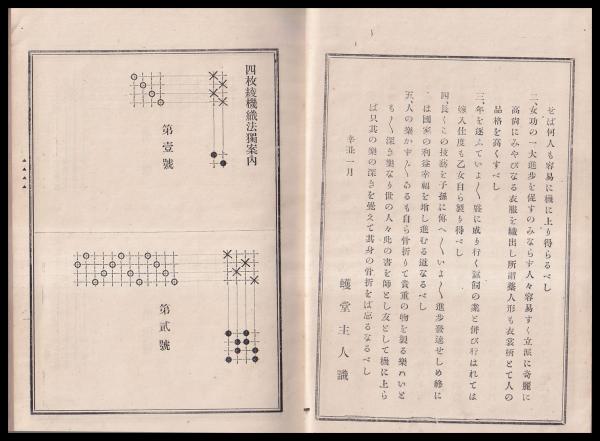 せば何人も容易に機に上り得らるべし
二、女功の一大進歩を促すのみならす人々容易すく立派に奇麗に
高尚にみやびなる衣服を織出し所謂藁人形も衣裳柄とて人の
品格を高くすべし
三、年を逐ふていよ〱盛に成り行く蠶飼の業と併び行はれては
嫁入仕度も乙女自ら製り得べし
四、長くこの技藝を子孫に傳へ〱いよ〱進歩發達せしめ終に
は國家の利益幸福を増し進むる道なるべし
五、人の樂かすみ〱あるも自ら骨折りて貴重の物を製る樂いと
も〱深き樂なり世の人々此の書を師とし友として機に上ら
ば只其の樂の深きを覺えて其身の骨折をば忘るなるべし
辛丑一月
堂主人識
四枚綾機織法獨案內
第壹號
第貳號